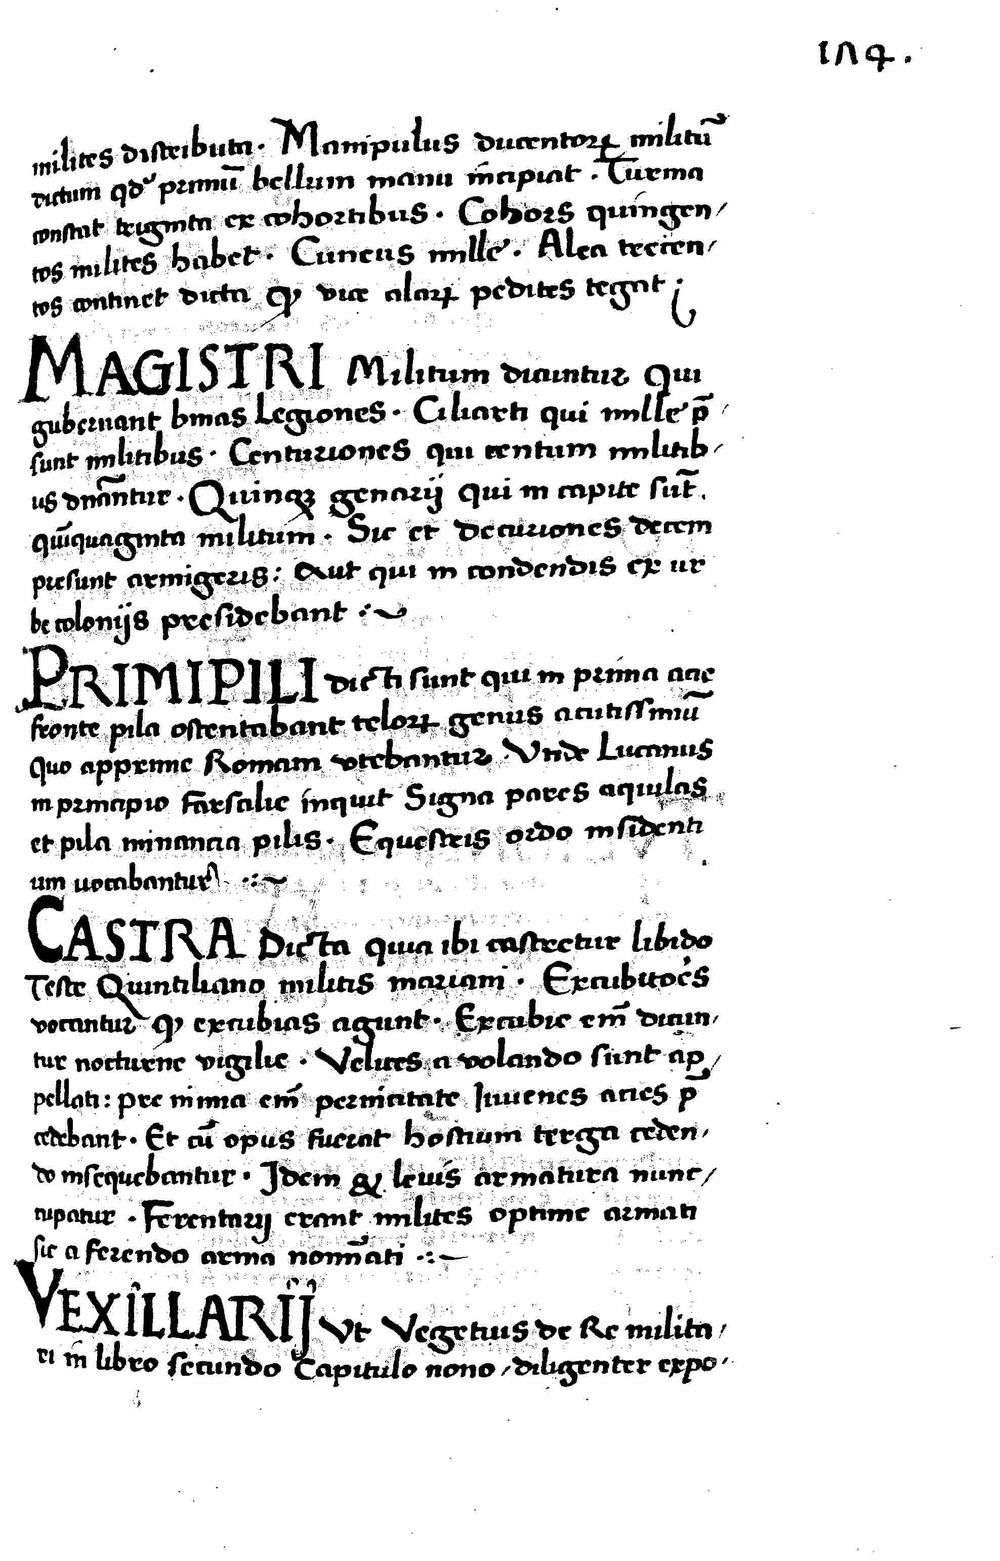 1Λ4.
milites distributa. Manipulus ducentorꝝ militū
dictum qd' primū bellum manu incipiat. Turma
constat triginta ex cohortibus. Cohors quingen/
tos milites habet. Cuneus mille. Alea trecen/
tos continet dicta ꝙ vice alarꝝ pedites tegat;
MAGISTRI Militum dicuntur Qui
gubernant binas Legiones. Ciliarti qui mille p̄/
sunt militibus. Centuriones qui centum militib/
us dnāntur. Quinqꝫ genarij qui in capite sūt.
quīquaginta militum. Sic et decuriones decem
presunt armigeris: Aut qui in condendis ex ur
be colonijs presidebant :~
PRIMIPILI dicti sunt qui in prima acie
fronte pila ostentabant telorꝝ genus acutissimū
Quo apprime Romam vtebantur. Vnde Lucanus
in principio Farsalie inquit Signa pares aquilas
et pila minancia pilis. Equestris ordo insidenti
um uocabantur .:~
CASTRA Dicta quia ibi castretur libido
Teste Quintiliano militis mariani. Excubitores
vocantur ꝙ excubias agunt. Excubie em̄ dicun/
tur nocturne vigilie. Velites a volando sunt ap/
pellati: pre nimia em̄ pernicitate Iuuenes acies p̄
cedebant. Et cū opus fuerat hostium terga ceden/
do insequebantur. Idem & leuis armatura nunc/
cupatur. Ferentarij erant milites optime armati
sic a ferendo arma nomīati .:~
VEXILLARIJ Vt Vegetius de Re milita/
ri in libro secundo Capitulo nono / diligenter expo/